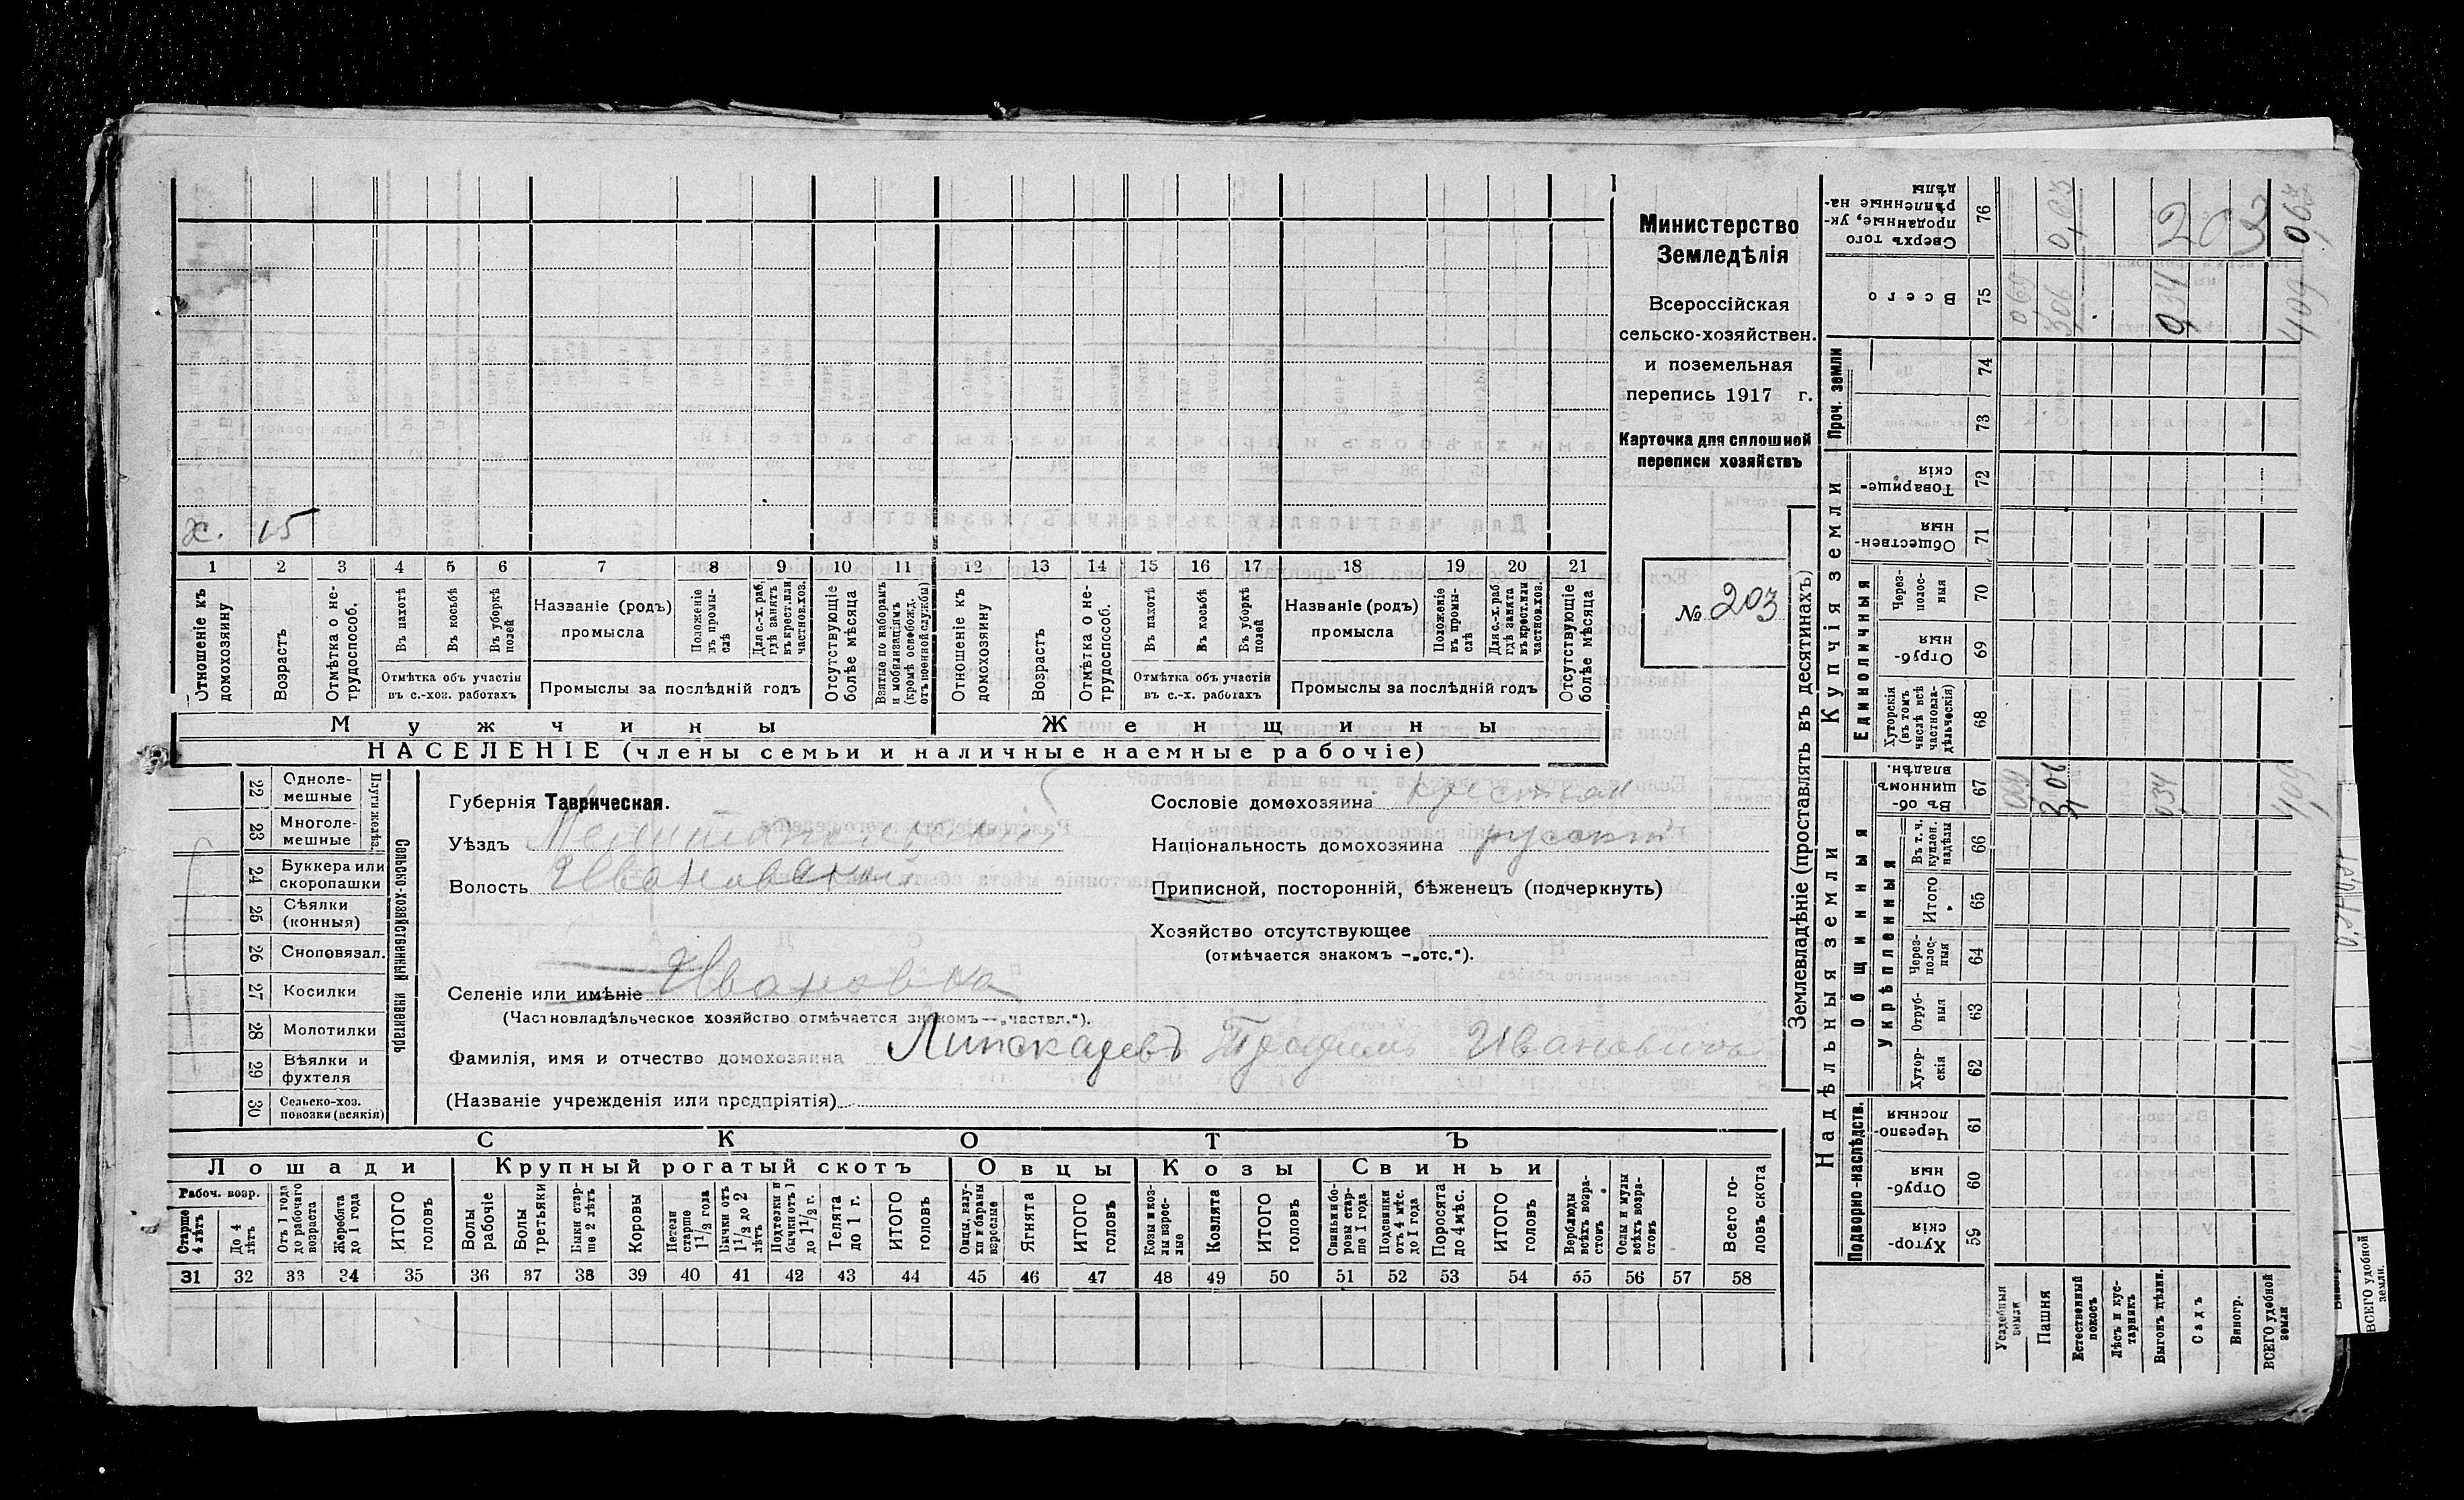 х. 15
1 2 3 4 5 6 7 8 9 10 11 12 13 14 15 16 17 18 19 20 21
Отношеніе къ домохозяину
Возрастъ
Отмѣтка о не-трудоспособ.
Въ пахотѣ
Въ косьбѣ
Въ уборкѣ полей
Отмѣтка объ участіи
въ с.-хоз. работахъ
Названіе (родъ)
промысла
Положеніе въ промы-слѣ
Для с.-х. раб. гдѣ занятъ въ крест. или частнов. хоз.
Промыслы за послѣдній годъ
Отсутствующіе болѣе мѣсяца
Взятые по наборамъ и мобилизаціямъ (кромѣ освобожд. отъ военной службы)
Отношеніе къ домохозяину
Возрастъ
Отмѣтка о не-трудоспособ.
Въ пахотѣ
Въ косьбѣ
Въ уборкѣ полей
Отмѣтка объ участіи
въ с.-х. работахъ
Названіе (родъ)
промысла
Положеніе въ промы-слѣ
Для с.-х. раб. гдѣ занята въ крест. или частнов. хоз.
Промыслы за послѣдній годъ
Отсутствующіе болѣе мѣсяца
Мужчины
Женщины
НАСЕЛЕНІЕ (члены семьи и наличные наемные рабочіе)
Министерство
Земледѣлія
Всероссійская
сельско-хозяйствен.
и поземельная
перепись 1917 г.
Карточка для сплошной
переписи хозяйствъ
№ 203
22 Однолемешные
23 Многолемешные
Плуги желѣз.
24 Буккера или скоропашки
25 Сѣялки (конныя)
26 Сноповязал.
27 Косилки
28 Молотилки
29 Вѣялки и фухтеля
30 Сельско-хоз. повозки (всякія)
Сельско-хозяйственный инвентарь
Губернія Таврическая.
Уѣздъ Мелитопольскій
Волость Ивановская
Селеніе или имѣніе Ивановка
(Частновладѣльческое хозяйство отмѣчается знакомъ—„частвл.“).
Фамилія, имя и отчество домохозяина Липскаревъ Трофимъ Ивановичъ
(Названіе учрежденія или предпріятія)
Сословіе домохозяина крестьян
Національность домохозяина русскій
Приписной, посторонній, бѣженецъ (подчеркнуть)
Хозяйство отсутствующее
(отмѣчается знакомъ —„отс.“).
СКОТЪ
Лошади
Крупный рогатый скотъ
Овцы
Козы
Свиньи
Рабоч. возр.
Старше 4 лѣтъ
До 4 лѣтъ
Отъ 1 года до рабочаго возраста
Жеребята до 1 года
ИТОГО головъ
Волы рабочіе
Волы третьяки
Быки старше 2 лѣтъ
Коровы
Нетели старше 1 1/2 года
Бычки отъ 1 1/2 до 2 лѣтъ
Подтелки и бычки отъ 1 до 1 1/2 г.
Телята до 1 г.
ИТОГО головъ
Овцы, валухи и бараны взрослые
Ягнята
ИТОГО головъ
Козы и козлы взрослые
Козлята
ИТОГО головъ
Свиньи и боровы старше 1 года
Подсвинки отъ 4 мѣс. до 1 года
Поросята до 4 мѣс.
ИТОГО головъ
Верблюды всѣхъ возрастовъ
Ослы и мулы всѣхъ возрастовъ
Всего головъ скота
31 32 33 34 35 36 37 38 39 40 41 42 43 44 45 46 47 48 49 50 51 52 53 54 55 56 57 58
Землевладѣніе (проставлять въ десятинахъ)
Надѣльныя земли
Купчія земли
Проч. земли
Подворно-наслѣдств.
Общинныя
Укрѣпленныя
Единоличныя
Хуторскія 59
Отрубныя 60
Черезполосныя 61
Хуторскія 62
Отрубныя 63
Черезполосныя 64
Итого 65
Въ т. ч. куплен. надѣлы 66
Въ общинномъ владѣн. 67
Хуторскія (въ томъ числѣ всѣ частновладѣльческія) 68
Отрубныя 69
Черезполосныя 70
Общественныя 71
Товарищескія 72
73
74
Всего 75
Сверхъ того проданные, укрѣпленные надѣлы 76
Усадебныя земли 069
Пашня 3,06 306 0,63
Естественный покосъ
Лѣсъ и кустарникъ
Выгонъ цѣлин. 034 0,34
Садъ
Виногр.
ВСЕГО удобной земли 4,09 409 0,63
203
ВСЕГО удобной земли.